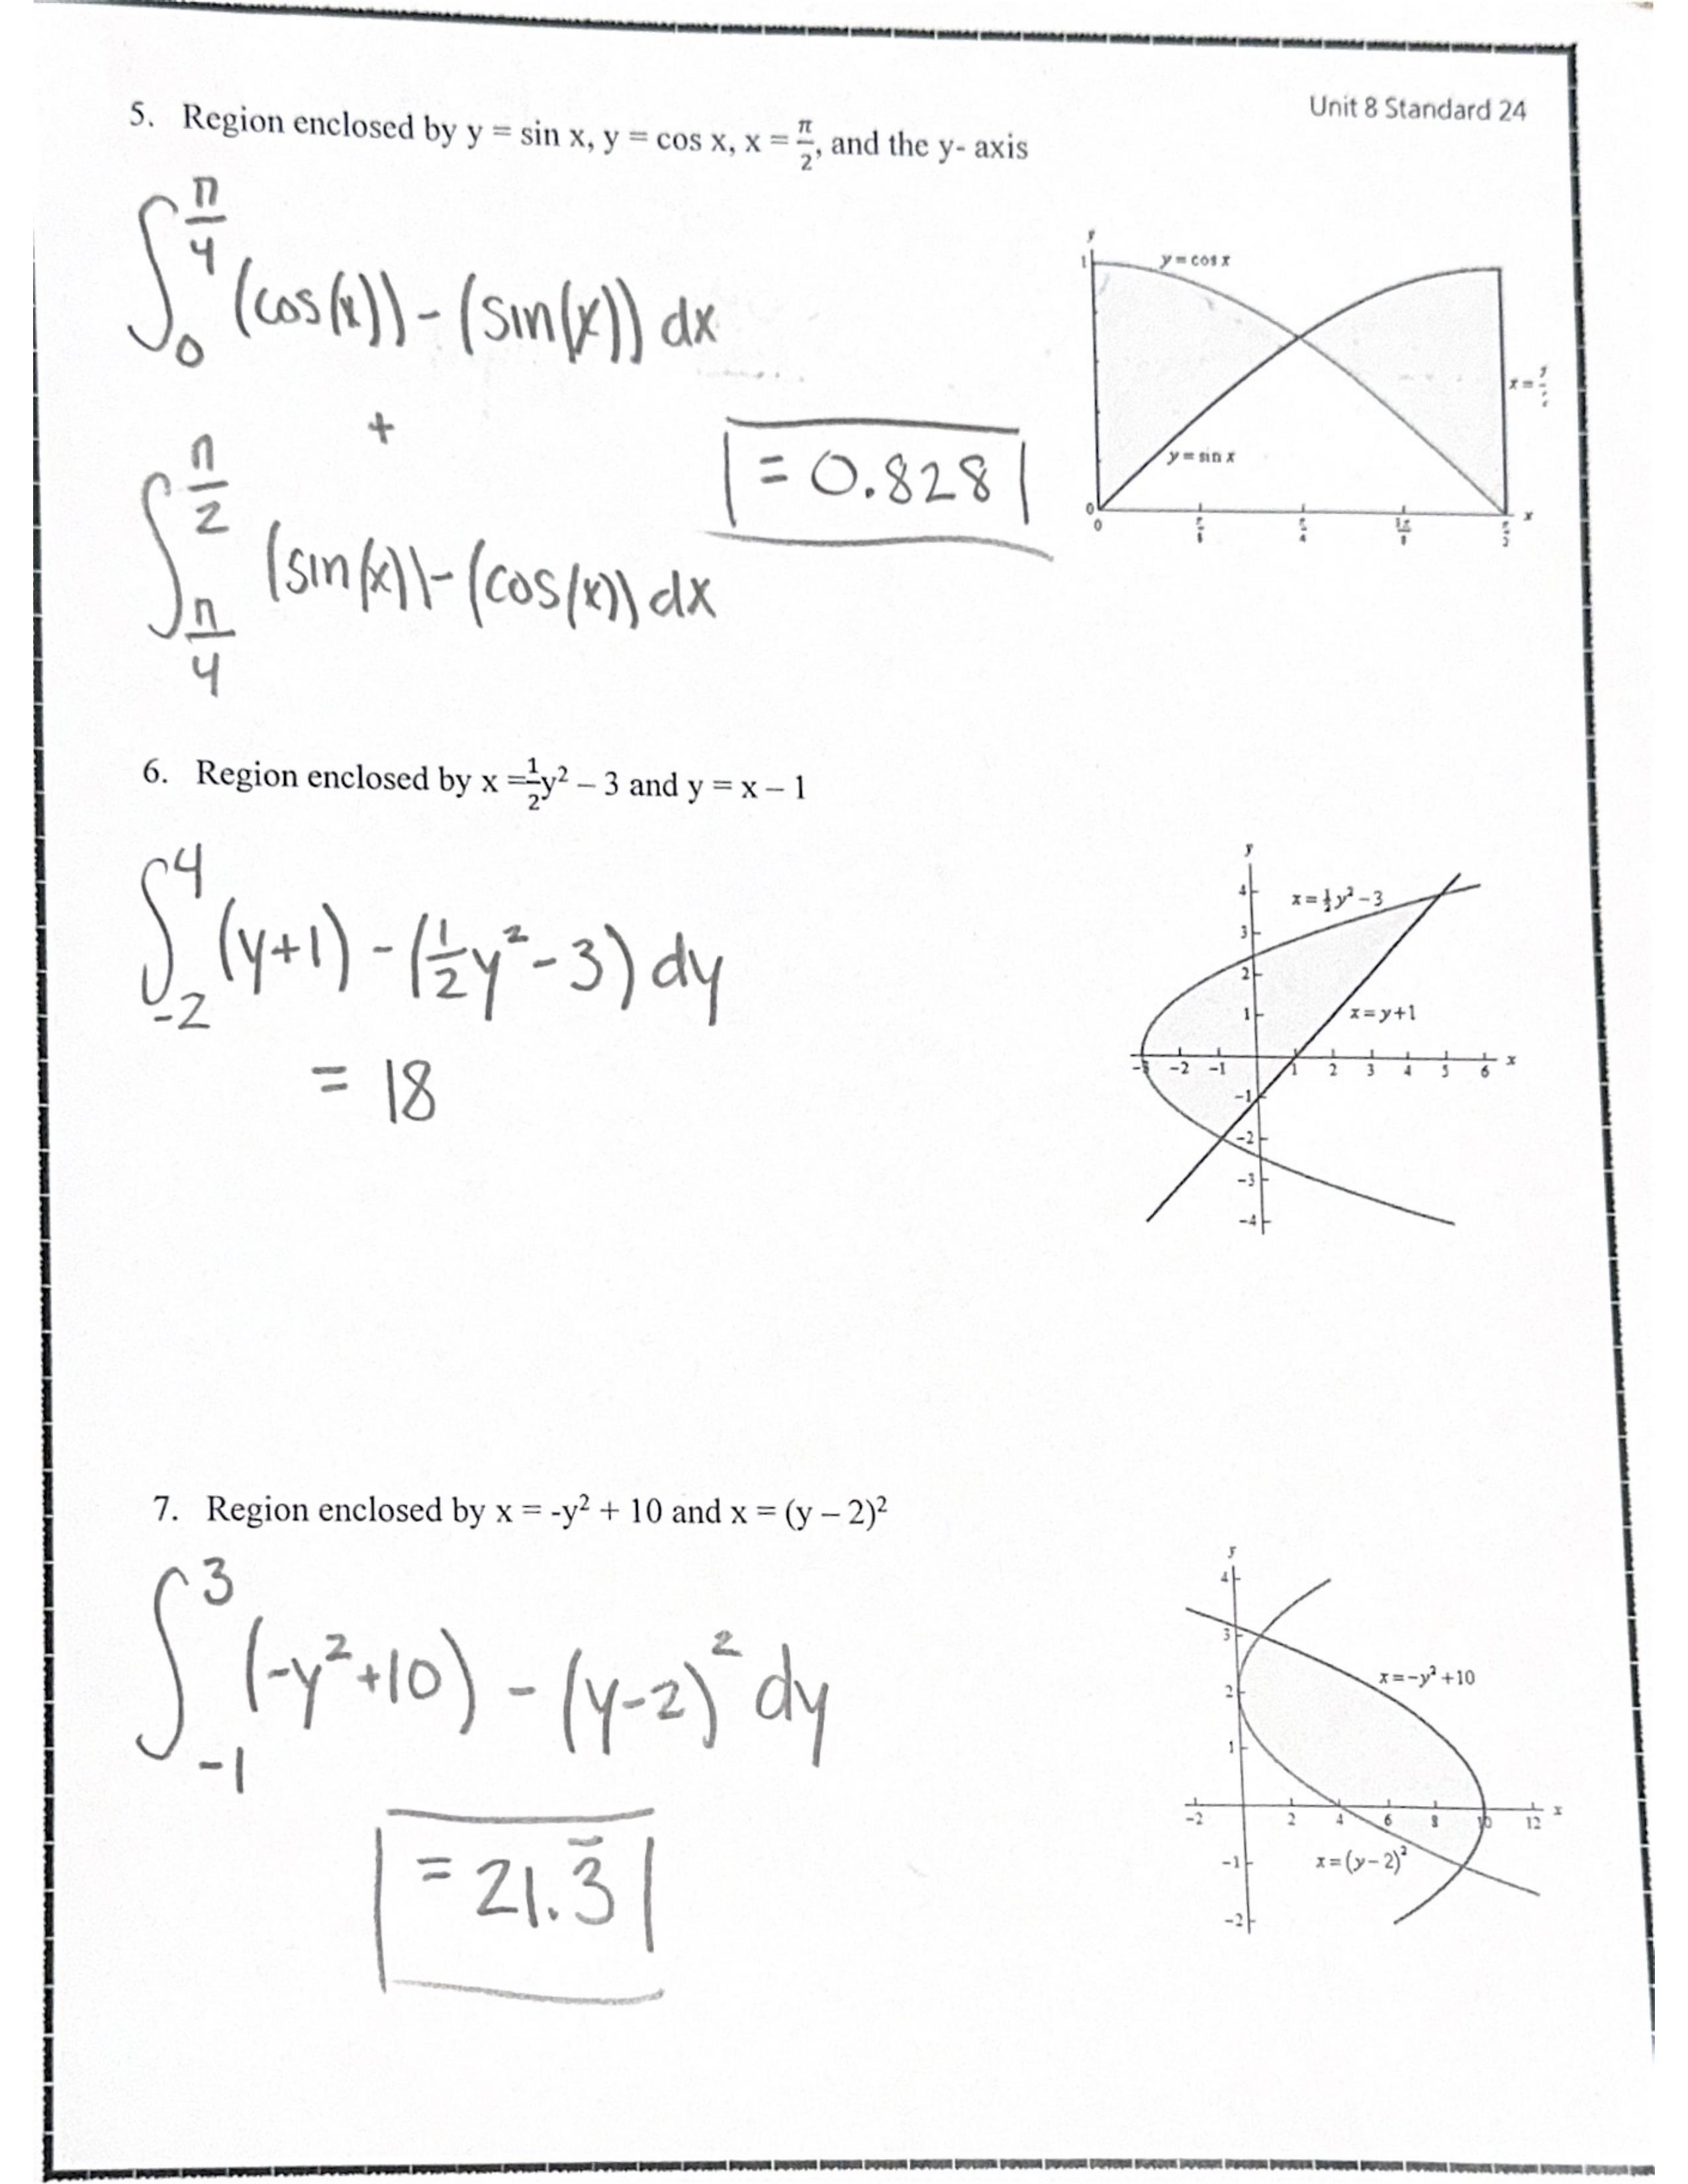 Unit 8 Standard 24
5. Region enclosed by y = sin x, y = cos x, x = π/2, and the y- axis
∫₀^(π/4) (cos(x)) - (sin(x)) dx
+
∫_(π/4)^(π/2) (sin(x)) - (cos(x)) dx
= 0.828
y
1
y = cos x
x =
y = sin x
0
0
x
6. Region enclosed by x = 1/2 y² – 3 and y = x – 1
∫₋₂⁴ (y+1) - (1/2 y² - 3) dy
= 18
y
x = ½ y² − 3
4
3
2
1
x = y+1
-3 -2 -1 1 2 3 4 5 6 x
-1
-2
-3
-4
7. Region enclosed by x = -y² + 10 and x = (y – 2)²
∫₋₁³ (-y²+10) - (y-2)² dy
= 21.3̅
y
4
3
x = −y² +10
2
1
-2 2 4 6 8 10 12 x
-1
x = (y−2)²
-2